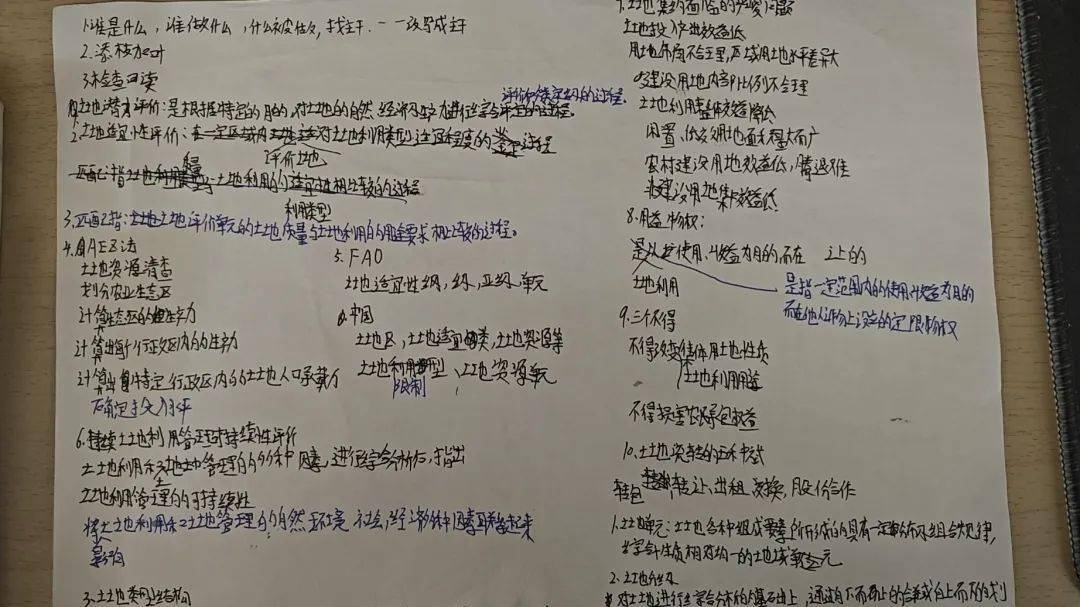 1.谁是什么,谁做什么,什么被怎么,找主干.一一改写成主干
2.添枝加叶
3.检查回读
评价和综合鉴定的过程.
1.土地潜力评价:是根据特定的目的,对土地的自然、经济属性进行综合评定的过程.
2.土地适宜性评价:对土地利用类型适宜程度的鉴定过程
评价土地
质量
匹配:指土地利用的适宜性相比较的过程
利用类型
3.匹配:指:土地评价单元的土地质量与土地利用的用途要求相比较的过程。
4.AEZ法
土地资源清查
划分农业生态区
计算生态区的生产力
计算出每个行政区内的生产力
计算出特定行政区内的土地人口承载力
确定投入水平
5.FAO
土地适宜性纲,级,亚级,单元
中国
土地区,土地适宜类,土地资源等
土地限制型、土地资源单元
限制
6.持续土地利用管理可持续性评价
土地利用和土地管理的多种因素,进行综合分析后,指出
土地利用管理的可持续性
将土地利用和土地管理的自然环境、社会、经济等多种因素联系起来
影响
3.土地类型结构
7.土地集约面临的主要问题
土地投入产出效益低
用地布局不合理,区域用地水平差异大
建设用地内部比例不合理
土地利用整体效益偏低
闲置、低效用地面积大而广
农村建设用地效益低,腾退难
建设用地集约效益低
8.用益物权:
是以使用、收益为目的,而在 之上的
土地利用
是指一定范围内的使用、收益为目的
而在他人物上设立的定限物权
9.三个不得
不得改变集体用地性质
土地利用用途
不得损害农民承包权益
10.土地流转的五种方式
转包,转让、出租、交换,股份合作
1.土地单元:土地各种组成要素所形成的具有一定分布组合规律,
综合性质相对均一的土地地域单元
2.土地分级
对土地进行综合分析的基础上,通过自下而上的合并或自上而下的划